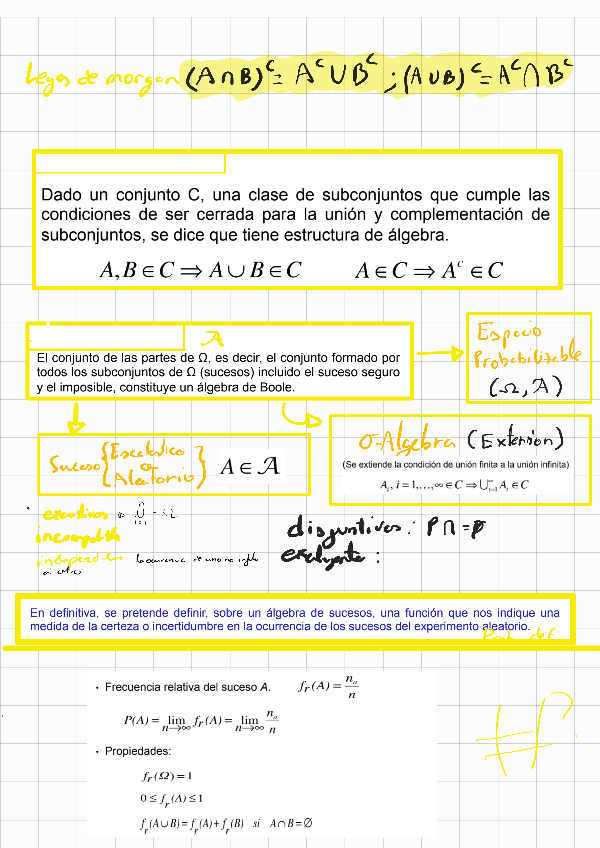 Leyes de morgan (A∩B)ᶜ = Aᶜ∪Bᶜ ; (A∪B)ᶜ = Aᶜ∩Bᶜ
Dado un conjunto C, una clase de subconjuntos que cumple las
condiciones de ser cerrada para la unión y complementación de
subconjuntos, se dice que tiene estructura de álgebra.
A, B ∈ C ⇒ A ∪ B ∈ C A ∈ C ⇒ Aᶜ ∈ C
𝒜
El conjunto de las partes de Ω, es decir, el conjunto formado por
todos los subconjuntos de Ω (sucesos) incluido el suceso seguro
y el imposible, constituye un álgebra de Boole.
Espacio
Probabilizable
(Ω, 𝒜)
Suceso { Estocástico
o
Aleatorio } A ∈ 𝒜
σ-Algebra (Extensión)
(Se extiende la condición de unión finita a la unión infinita)
Aᵢ, i = 1,…,∞ ∈ C ⇒ ∪ᵢ₌₁^∞ Aᵢ ∈ C
exaustivos
incompatible
la ocurrencia de uno no
disjuntivos: ∩ = ∅
excluyente :
En definitiva, se pretende definir, sobre un álgebra de sucesos, una función que nos indique una
medida de la certeza o incertidumbre en la ocurrencia de los sucesos del experimento aleatorio.
• Frecuencia relativa del suceso A. fᵣ(A) = nₐ/n
P(A) = lim n→∞ fᵣ(A) = lim n→∞ nₐ/n
• Propiedades:
fᵣ(Ω) = 1
0 ≤ fᵣ(A) ≤ 1
fᵣ(A ∪ B) = fᵣ(A) + fᵣ(B) si A ∩ B = ∅